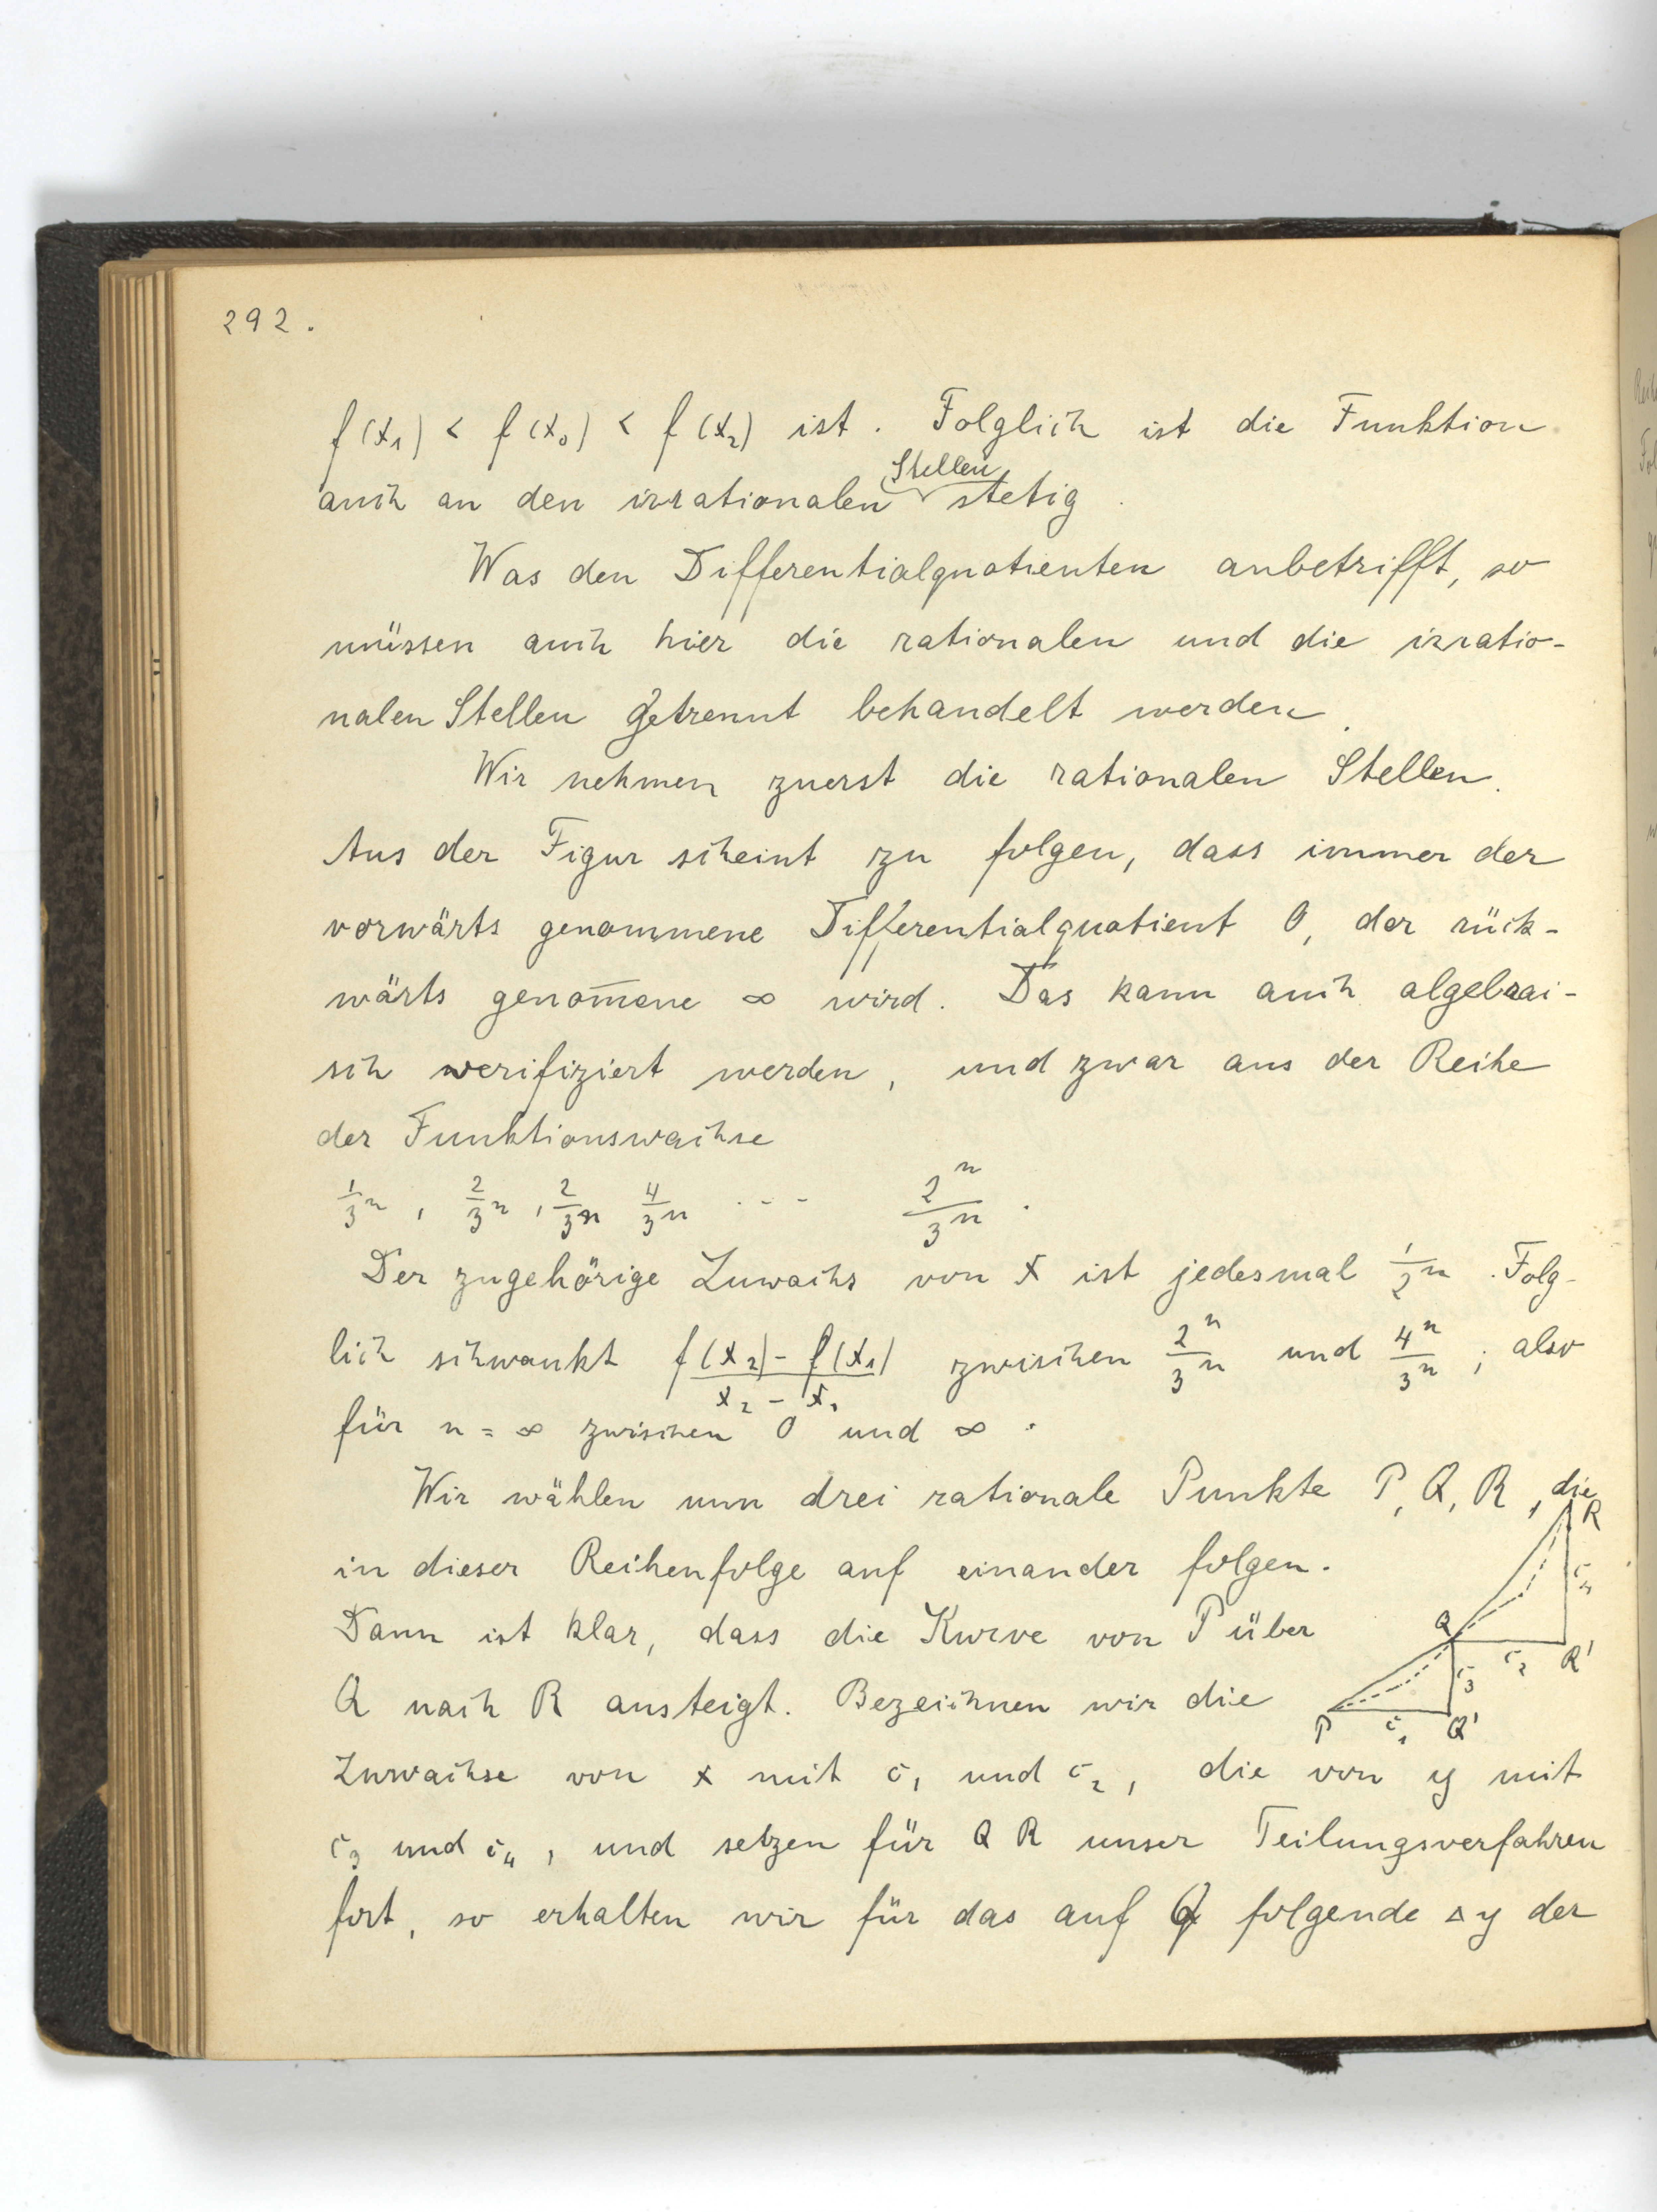 292.
f(x₁) < f(x₀) < f(x₂) ist. Folglich ist die Funktion
auch an den irrationalen Stellen stetig.
Was den Differentialquotienten anbetrifft, so
müssen auch hier die rationalen und die irratio-
nalen Stellen getrennt behandelt werden.
Wir nehmen zuerst die rationalen Stellen.
Aus der Figur scheint zu folgen, dass immer der
vorwärts genommene Differentialquotient 0, der rück-
wärts genom̅ene ∞ wird. Das kann auch algebrai-
sch werifiziert werden, und zwar aus der Reihe
der Funktionswachse
1/3ⁿ, 2/3ⁿ, 2/3ⁿ 4/3ⁿ - - - 2ⁿ/3ⁿ.
Der zugehörige Zuwachs von x ist jedesmal 1/2ⁿ. Folg-
lich schwankt (f(x₂) - f(x₁))/(x₂ - x₁) zwischen 2ⁿ/3ⁿ und 4ⁿ/3ⁿ; also
für n = ∞ zwischen 0 und ∞.
Wir wählen nun drei rationale Punkte P, Q, R, die
in dieser Reihenfolge auf einander folgen.
Dann ist klar, dass die Kurve von P über
Q nach R ansteigt. Bezeichnen wir die
Zuwachse von x mit c₁ und c₂, die von y mit
c₃ und c₄, und setzen für Q R unser Teilungsverfahren
fort, so erhalten wir für das auf Q folgende Δy der
R
c₄
Q
c₂ R'
c₃
P c₁ Q'